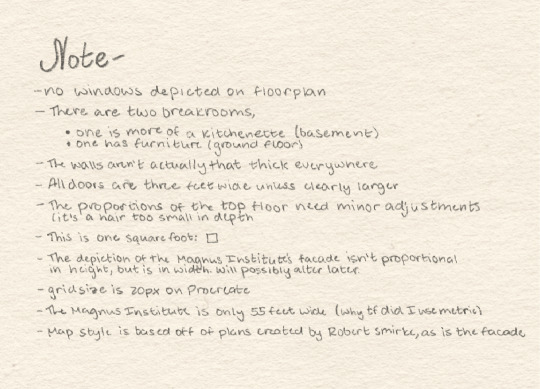 Note-
-no windows depicted on floorplan
- There are two breakrooms,
• one is more of a kitchenette (basement)
• one has furniture (ground floor)
- The walls aren't actually that thick everywhere
- All doors are three feet wide unless clearly larger
- The proportions of the top floor need minor adjustments
(it's a hair too small in depth
- This is one square foot: □
- The depiction of the Magnus Institute's facade isn't proportional
in height, but is in width. will possibly alter later.
- gridsize is 20px on Procreate
- The Magnus Institute is only 55 feet wide (why tf did I use metric)
- Map style is based off of plans created by Robert Smirke, as is the facade